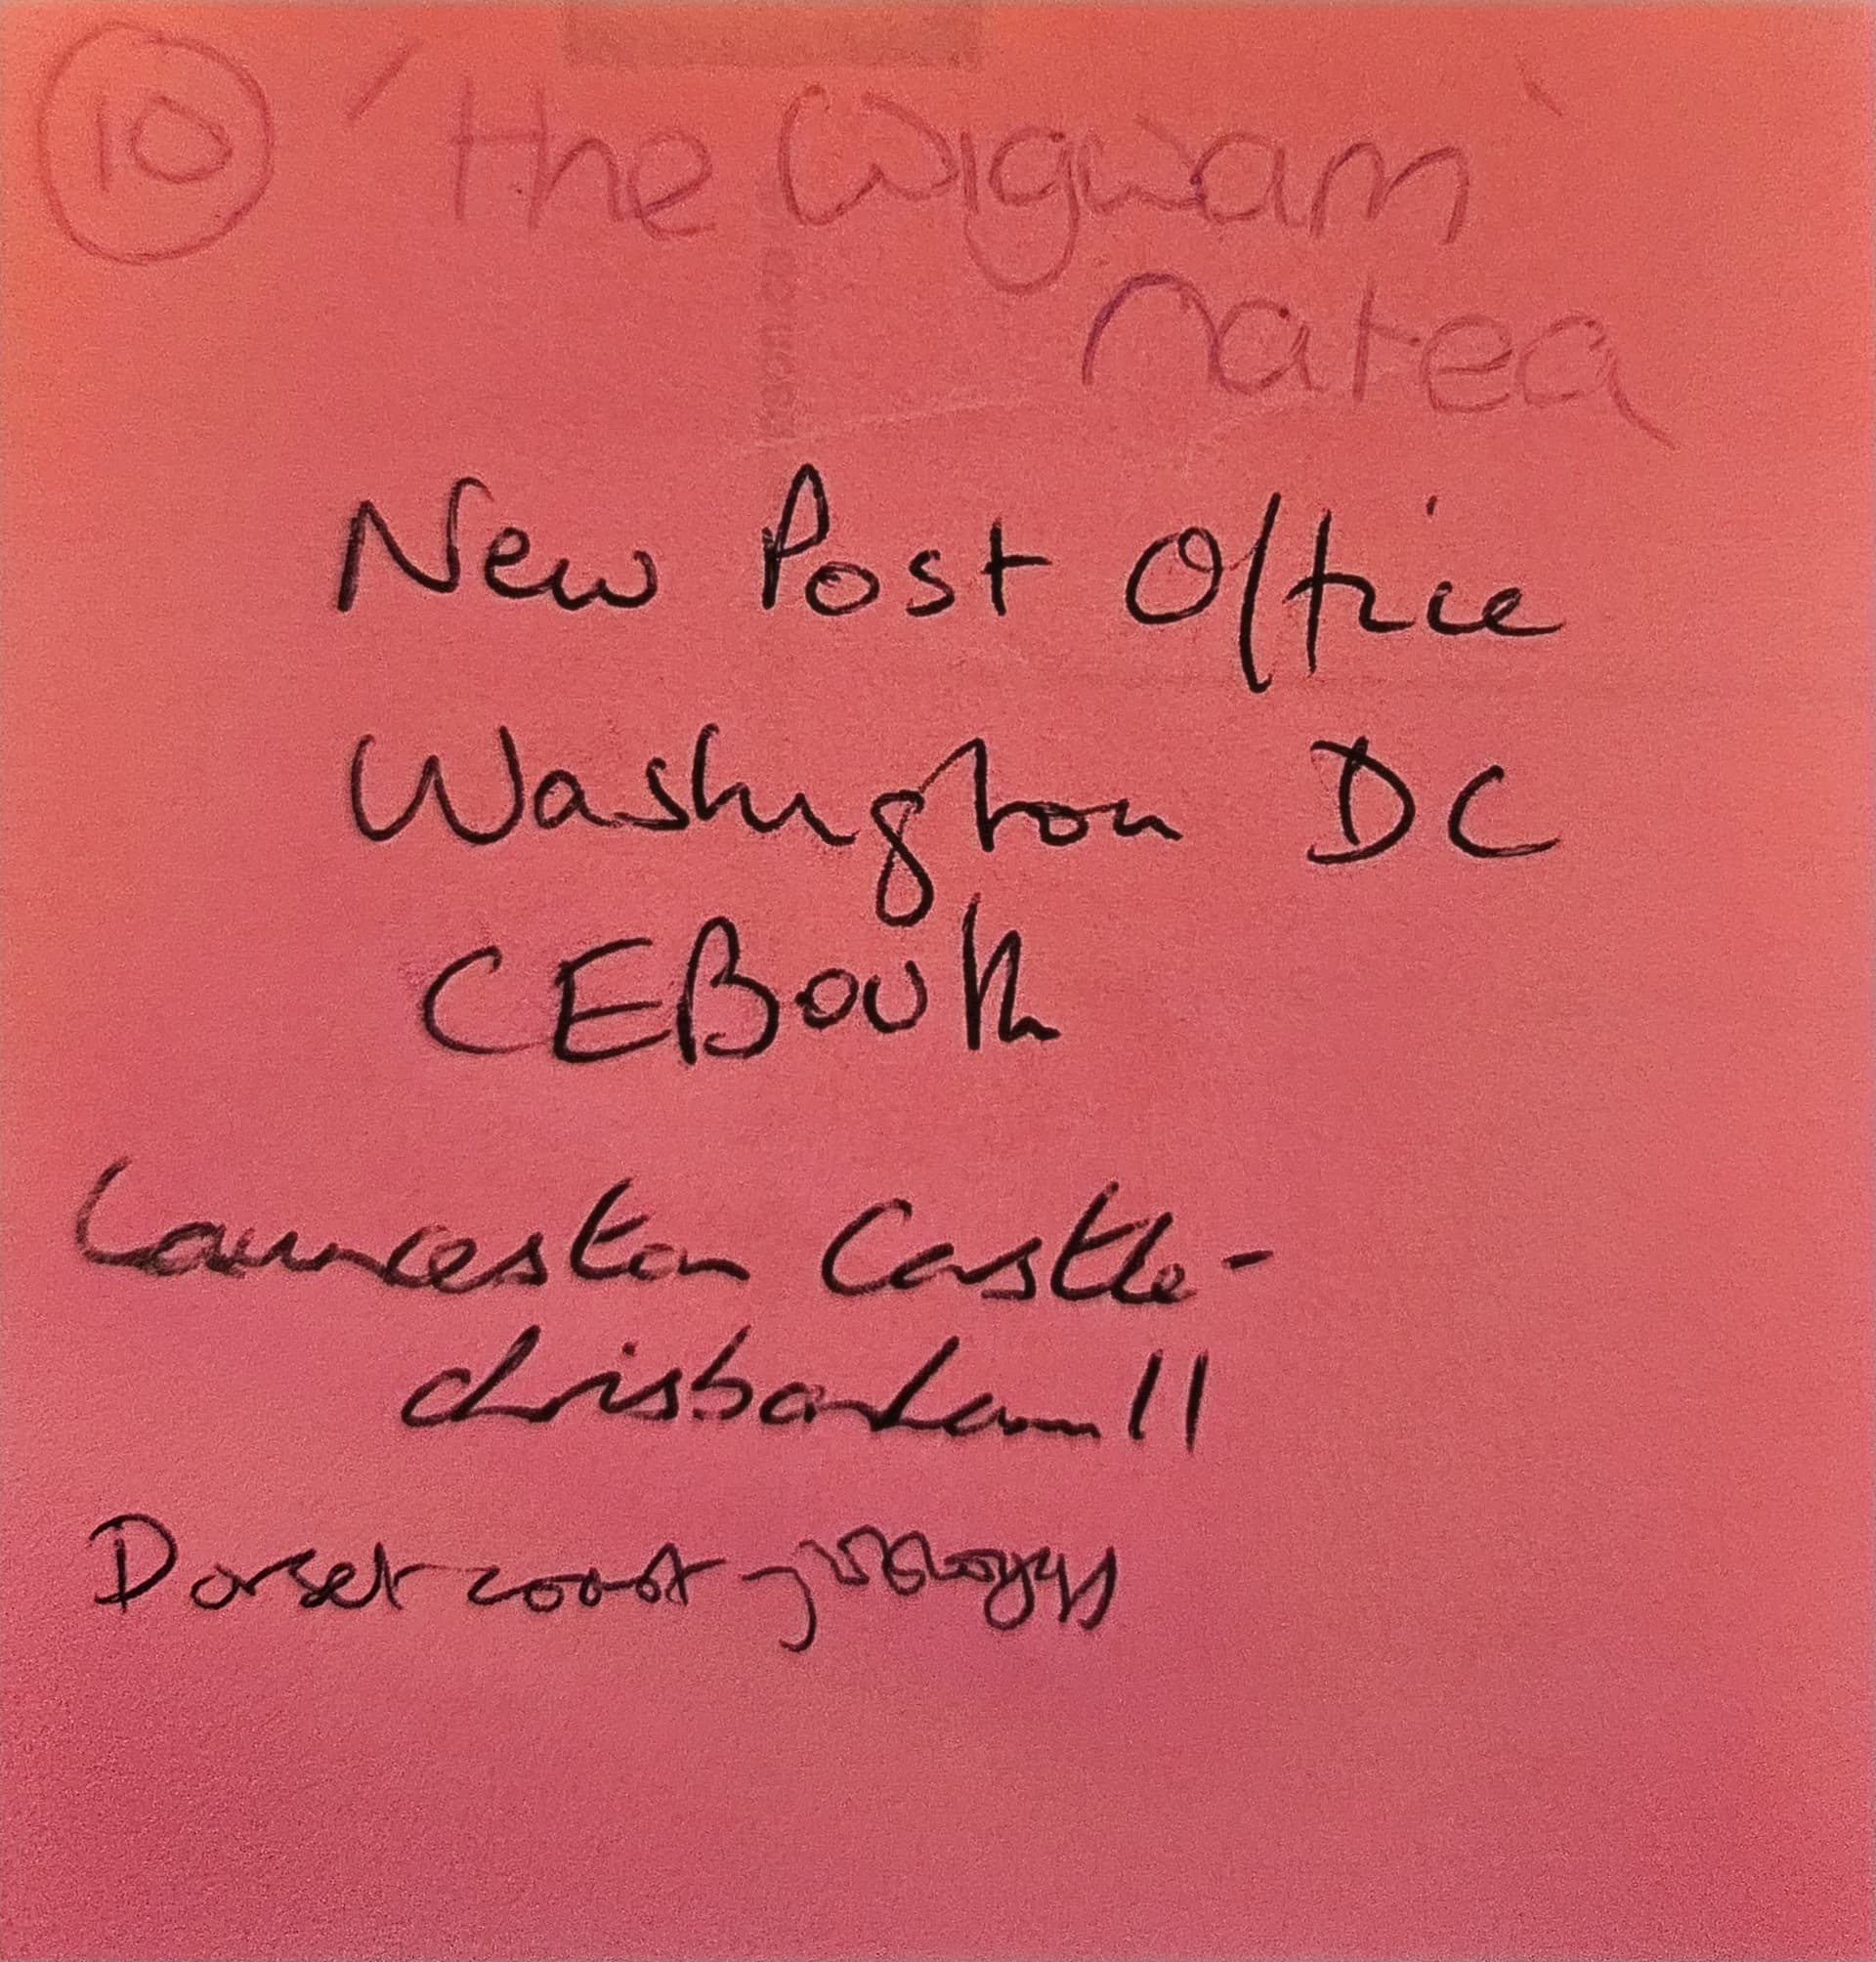 10 'the Wigwam'
natea
New Post Office
Washington DC
CEBouth
Launceston Castle -
chrisbanham11
Dorset coast -